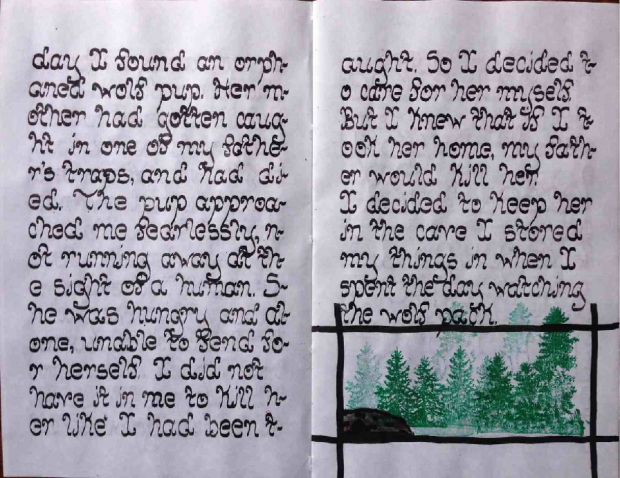 day I found an orph-
aned wolf pup. Her m-
other had gotten caug-
ht in one of my fathe-
r's traps, and had di-
ed. The pup approa-
ched me fearlessly, n-
ot running away at th-
e sight of a human. S-
he was hungry and al-
one, unable to fend fo-
r herself. I did not
have it in me to kill h-
er like I had been t-
aught. So I decided t-
o care for her myself.
But I knew that if I t-
ook her home, my fath-
er would kill her.
I decided to keep her
in the cave I stored
my things in when I
spent the day watching
the wolf pack.